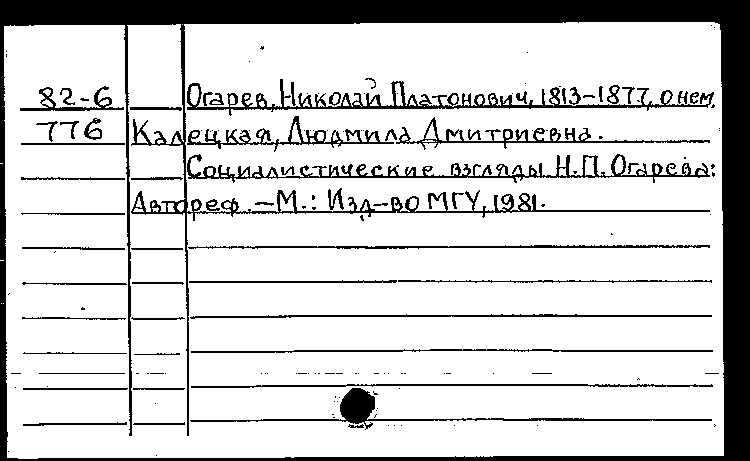 82-6 Огарев, Николай Платонович, 1813-1877, о нем
776 Калецкая, Людмила Дмитриевна.
Социалистические взгляды Н.П. Огарева:
Автореф. -М.: Изд-во МГУ, 1981.